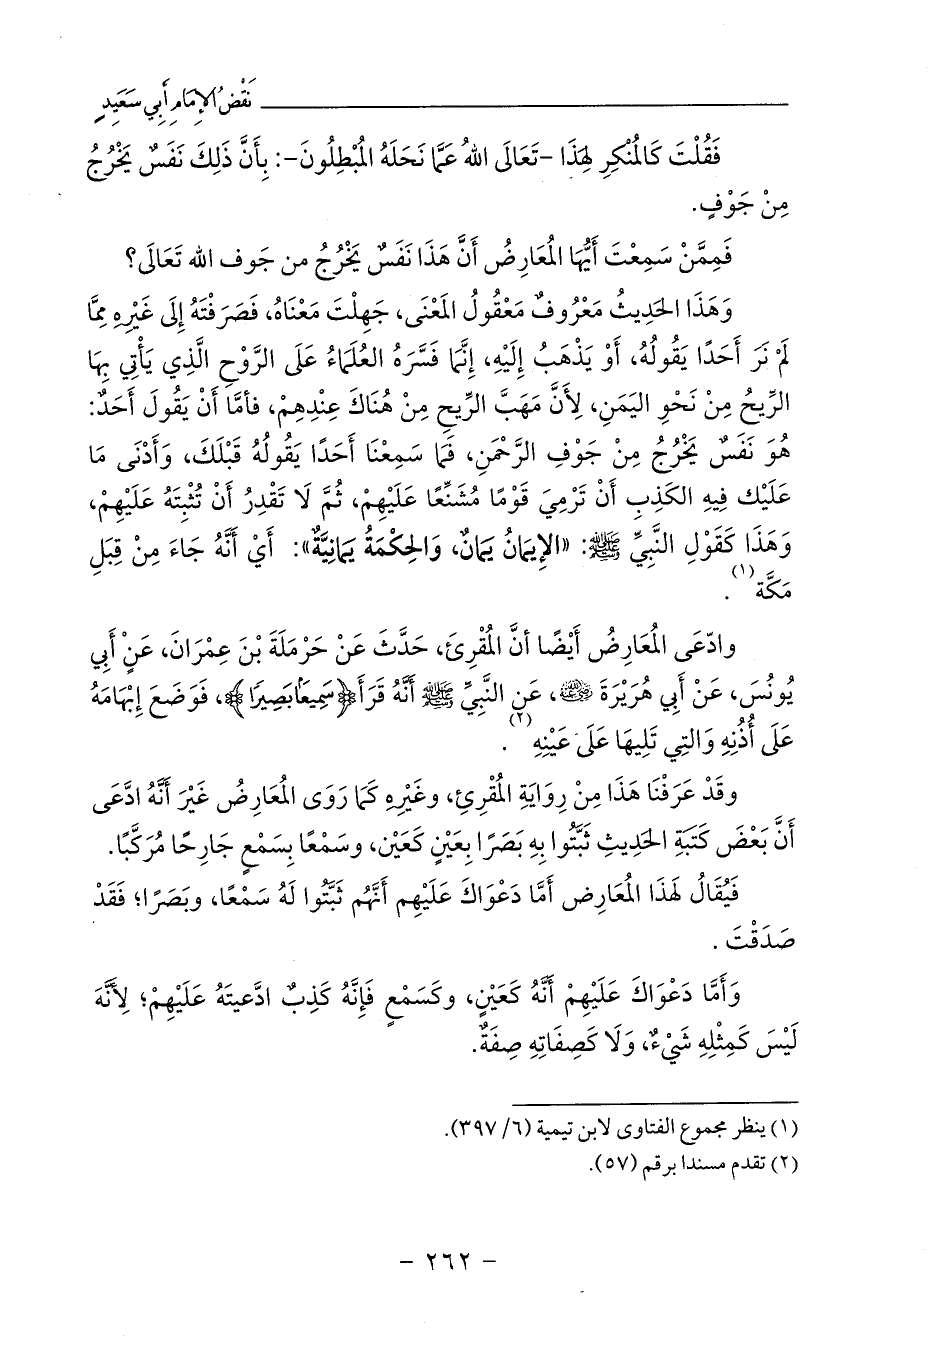 نَقْضُ الإِمَامِ أَبِي سَعِيدٍ
فَقُلْتَ كَالمُنْكِرِ لِهَذَا -تَعَالَى اللهُ عَمَّا نَحَلَهُ المُبْطِلُونَ-: بِأَنَّ ذَلِكَ نَفَسٌ يَخْرُجُ
مِنْ جَوْفٍ.
فَمِمَّنْ سَمِعْتَ أَيُّهَا المُعَارِضُ أَنَّ هَذَا نَفَسٌ يَخْرُجُ من جَوف الله تَعَالَى؟
وَهَذَا الحَدِيثُ مَعْرُوفٌ مَعْقُولُ المَعْنَى، جَهِلْتَ مَعْنَاهُ، فَصَرَفْتَهُ إِلَى غَيْرِهِ مِمَّا
لَمْ نَرَ أَحَدًا يَقُولُهُ، أَوْ يَذْهَبُ إِلَيْهِ، إِنَّمَا فَسَّرَهُ العُلَمَاءُ عَلَى الرَّوْحِ الَّذِي يَأْتِي بِهَا
الرِّيحُ مِنْ نَحْوِ اليَمَنِ، لِأَنَّ مَهَبَّ الرِّيحِ مِنْ هُنَاكَ عِنْدِهِمْ، فَأمَّا أَنْ يَقُولَ أَحَدٌ:
هُوَ نَفَسٌ يَخْرُجُ مِنْ جَوْفِ الرَّحْمَنِ، فَمَا سَمِعْنَا أَحَدًا يَقُولُهُ قَبْلَكَ، وَأَدْنَى مَا
عَلَيْك فِيهِ الكَذِبِ أَنْ تَرْمِيَ قَوْمًا مُشَنِّعًا عَلَيْهِمْ، ثُمَّ لَا تَقْدِرُ أَنْ تُثْبِتَهُ عَلَيْهِمْ،
وَهَذَا كَقَوْلِ النَّبِيِّ ﷺ: «الإِيمَانُ يَمَانٌ، وَالحِكْمَةُ يَمَانِيَّةٌ»: أَيْ أَنَّهُ جَاءَ مِنْ قِبَلِ
مَكَّة(١).
وادّعَى المُعَارِضُ أَيْضًا أنَّ المُقْرِئَ، حَدَّثَ عَنْ حَرْمَلَةَ بْنِ عِمْرَانَ، عَنْ أَبِي
يُونُسَ، عَنْ أَبِي هُرَيْرَةَ رضي الله عنه، عَنِ النَّبِيِّ ﷺ أَنَّهُ قَرَأَ ﴿سَمِيعًا بَصِيرًا﴾، فَوَضَعَ إِبْهَامَهُ
عَلَى أُذُنِهِ وَالتِي تَلِيهَا عَلَى عَيْنِهِ(٢).
وقَدْ عَرَفْنَا هَذَا مِنْ رِوَايَةِ المُقْرِئِ، وغَيْرِهِ كَمَا رَوَى المُعَارِضُ غَيْرَ أَنَّهُ ادَّعَى
أَنَّ بَعْضَ كَتَبَةِ الحَدِيثِ ثَبَّتُوا بِهِ بَصَرًا بِعَيْنٍ كَعَيْن، وسَمْعًا بِسَمْعٍ جَارِحًا مُرَكَّبًا.
فَيُقَالُ لهَذا المُعَارِضِ أَمَّا دَعْوَاكَ عَلَيْهِم أَنَّهُم ثَبَّتُوا لَهُ سَمْعًا، وبَصَرًا؛ فَقَدْ
صَدَقْتَ.
وَأَمَّا دَعْوَاكَ عَلَيْهِمْ أَنَّهُ كَعَيْنٍ، وكَسَمْعٍ فَإِنَّهُ كَذِبٌ ادَّعيتَهُ عَلَيْهِمْ؛ لِأَنَّهُ
لَيْسَ كَمِثْلِهِ شَيْءٌ، وَلَا كَصِفَاتِهِ صِفَةٌ.
(١) ينظر مجموع الفتاوى لابن تيمية (٦/ ٣٩٧).
(٢) تقدم مسندا برقم (٥٧).
- ٢٦٢ -